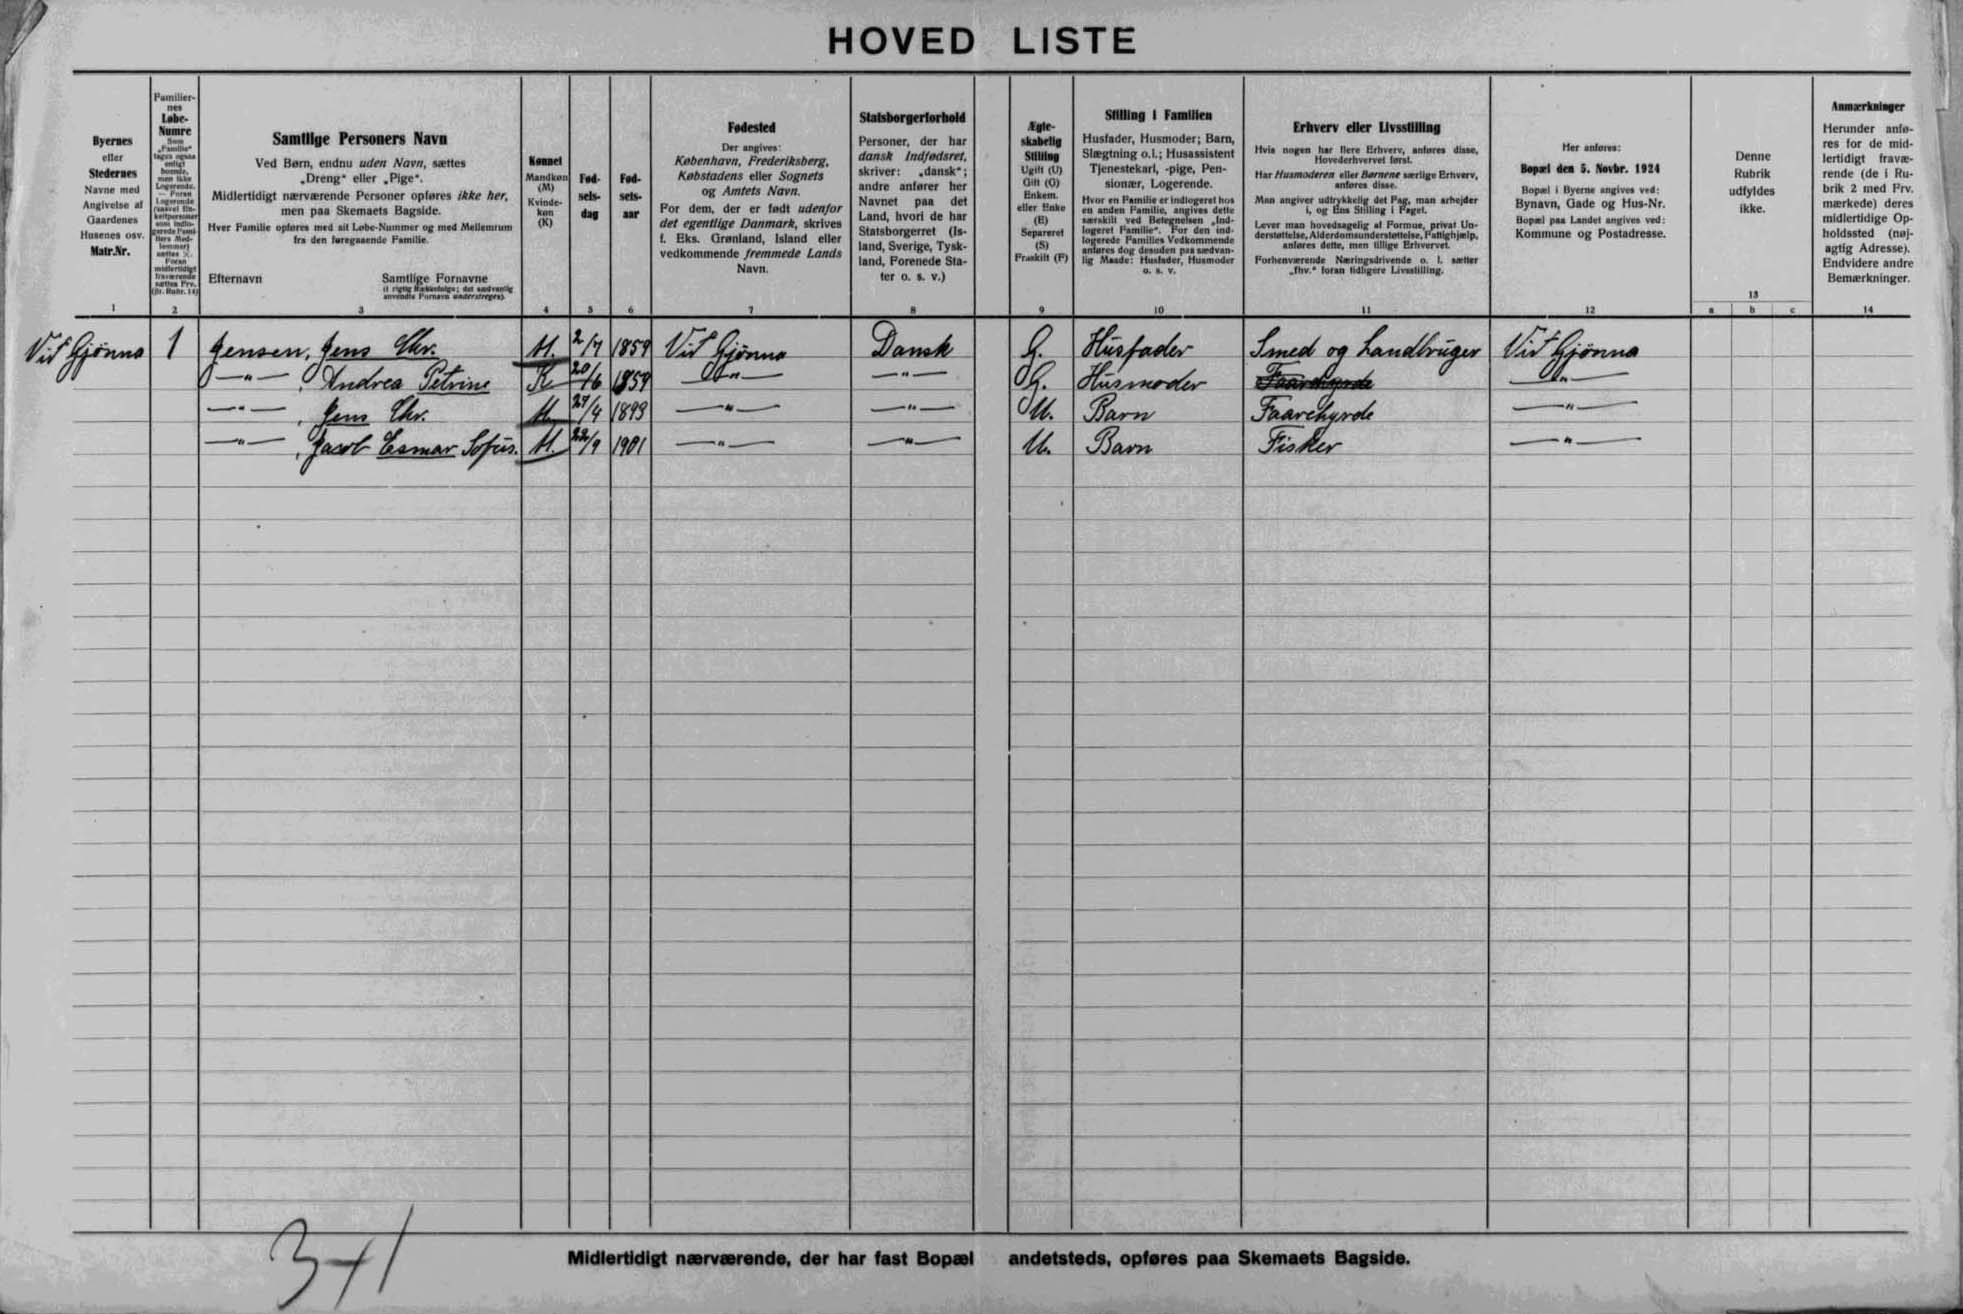 HOVED LISTE
Byernes
eller
Stedernes
Navne med
Angivelse af
Gaardenes
Husenes osv.
Matr.Nr.
1
Familier-
nes
Løbe-
Numre
Som
„Familie“
tages ogsaa
enligt
boende,
men ikke
Logerende.
— Foran
Logerende
2
Samtlige Personers Navn
Ved Børn, endnu uden Navn, sættes
„Dreng“ eller „Pige“.
Midlertidigt nærværende Personer opføres ikke her,
men paa Skemaets Bagside.
Hver Familie opføres med sit Løbe-Nummer og med Mellemrum
fra den foregaaende Familie.
Efternavn Samtlige Fornavne
(i rigtig Rækkefølge; det sædvanlig
anvendte Fornavn understreges).
3
Kønnet
Mandkøn
(M)
Kvinde-
køn
(K)
4
Fød-
sels-
dag
5
Fød-
sels-
aar
6
Fødested
Der angives:
København, Frederiksberg,
Købstadens eller Sognets
og Amtets Navn.
For dem, der er født udenfor
det egentlige Danmark, skrives
f. Eks. Grønland, Island eller
vedkommende fremmede Lands
Navn.
7
Statsborgerforhold
Personer, der har
dansk Indfødsret,
skriver: „dansk“;
andre anfører her
Navnet paa det
Land, hvori de har
Statsborgerret (Is-
land, Sverige, Tysk-
land, Forenede Sta-
ter o. s. v.)
8
Ægte-
skabelig
Stilling
Ugift (U)
Gift (G)
Enkem.
eller Enke
(E)
Separeret
(S)
Fraskilt (F)
9
Stilling i Familien
Husfader, Husmoder; Barn,
Slægtning o.l.; Husassistent
Tjenestekarl, -pige, Pen-
sionær, Logerende.
Hvor en Familie er indlogeret hos
en anden Familie, angives dette
særskilt ved Betegnelsen „Ind-
logeret Familie“. For den ind-
logerede Families Vedkommende
anføres dog desuden paa sædvan-
lig Maade: Husfader, Husmoder
o. s. v.
10
Erhverv eller Livsstilling
Hvis nogen har flere Erhverv, anføres disse,
Hovederhvervet først.
Har Husmoderen eller Børnene særlige Erhverv,
anføres disse.
Man angiver udtrykkelig det Fag, man arbejder
i, og Ens Stilling i Faget.
Lever man hovedsagelig af Formue, privat Un-
derstøttelse, Alderdomsunderstøttelse, Fattighjælp,
anføres dette, men tillige Erhvervet.
Forhenværende Næringsdrivende o. l. sætter
„fhv.“ foran tidligere Livsstilling.
11
Her anføres:
Bopæl den 5. Novbr. 1924
Bopæl i Byerne angives ved:
Bynavn, Gade og Hus-Nr.
Bopæl paa Landet angives ved:
Kommune og Postadresse.
12
Denne
Rubrik
udfyldes
ikke.
13
a b c
Anmærkninger
Herunder anfø-
res for de mid-
lertidigt fravæ-
rende (de i Ru-
brik 2 med Frv.
mærkede) deres
midlertidige Op-
holdssted (nøj-
agtig Adresse).
Endvidere andre
Bemærkninger.
14
Vid Gjónna 1 Jensen, Jens Chr. M. 2/7 1859 Vid Gjónna Dansk G. Húsfader Smed og Landbrúger Vid Gjónna
—"— , Andrea Petrine K 20/6 1859 —"— —"— G. Húsmoder Faarehyrde —"—
—"— , Jens Chr. M. 29/4 1899 —"— —"— U. Barn Faarehyrde —"—
—"— , Jacob Esmar Sofús. M. 22/9 1901 —"— —"— U. Barn Fisker —"—
3+1
Midlertidigt nærværende, der har fast Bopæl andetsteds, opføres paa Skemaets Bagside.